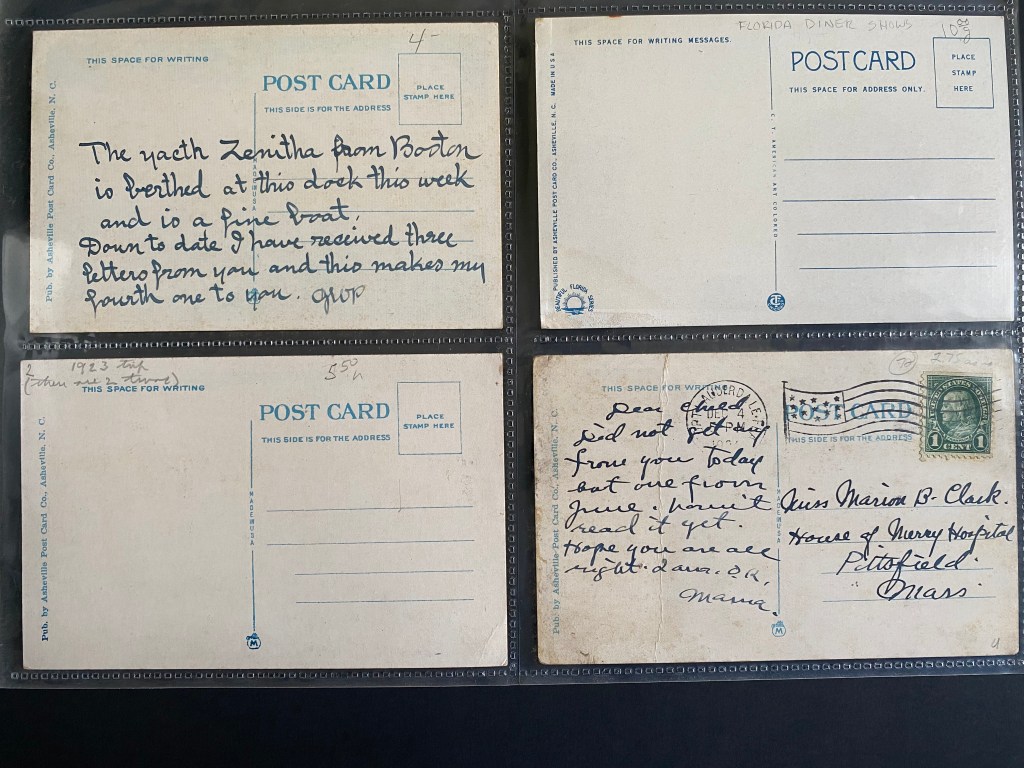 4-
THIS SPACE FOR WRITING
POST CARD
PLACE
STAMP HERE
THIS SIDE IS FOR THE ADDRESS
Pub. by Asheville Post Card Co., Asheville, N. C.
MADE IN USA
The yacth Zenitha from Boston
is berthed at this dock this week
and is a fine boat.
Down to date I have received three
letters from you and this makes my
fourth one to you. GWP
FLORIDA DINER SHOWS
THIS SPACE FOR WRITING MESSAGES.
POSTCARD
PLACE
STAMP
HERE
THIS SPACE FOR ADDRESS ONLY.
PUBLISHED BY ASHEVILLE POST CARD CO., ASHEVILLE, N. C. MADE IN USA
C. T. AMERICAN ART COLORED
BEAUTIFUL FLORIDA SERIES
2 1923
THIS SPACE FOR WRITING
5.50
POST CARD
PLACE
STAMP HERE
THIS SIDE IS FOR THE ADDRESS
Pub. by Asheville Post Card Co., Asheville, N. C.
MADE IN USA
M
2.75
THIS SPACE FOR WRITING
POST CARD
THIS SIDE IS FOR THE ADDRESS
LAUDERDALE
DEC 4
UNITED STATES POSTAGE
1 CENT 1
Pub. by Asheville Post Card Co., Asheville, N. C.
MADE IN USA
M
Dear
Did not get any
from you today
but one from
June.
read it yet.
Hope you are all
right.
Mama.
Miss Marion B. Clark.
House of Mercy Hospital
Pittsfield
Mass